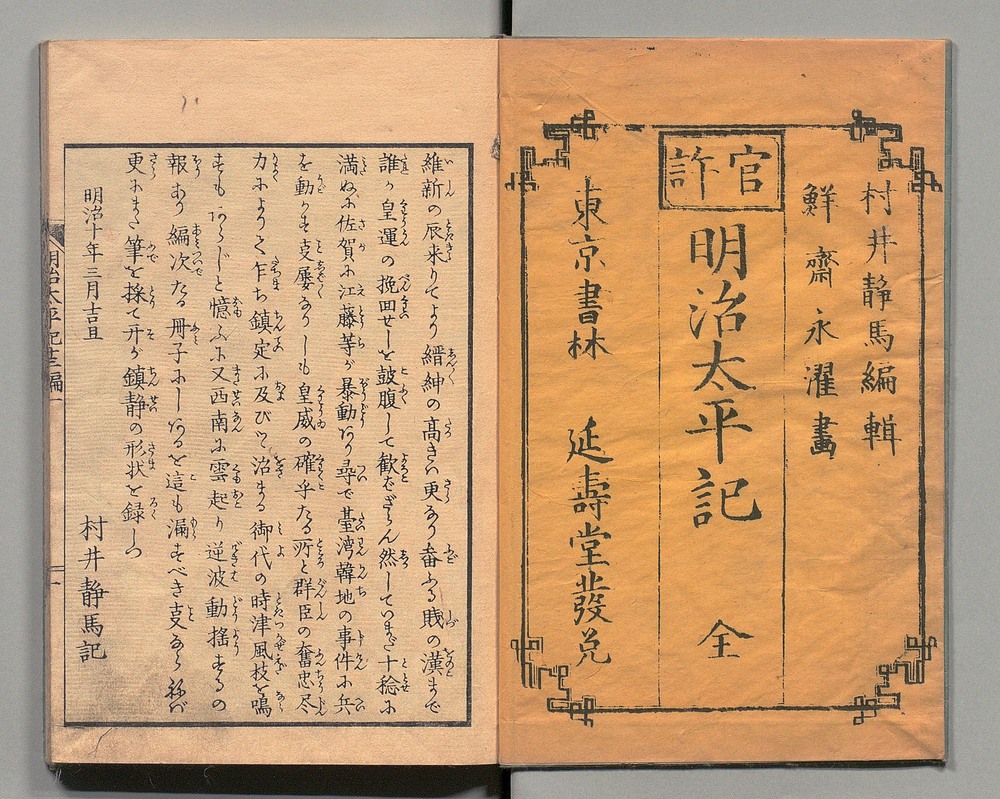 村井靜馬編輯
鮮齋永濯畫
官許
明治太平記 全
東京書林 延壽堂發兌
維新の辰来りてより縉紳の高きハ更なり奋ふる賎の漢まで
誰か皇運の挽回せしを鼓腹して歓をざらん然していまだ十稔に
満ぬに佐賀に江藤等が暴動あり尋で臺湾韓地の事件に兵
を動かす支屡ありしも皇威の確乎たる所と群臣の奮忠尽
力によりて乍ち鎮定に及びと治まる御代の時津風枝を鳴
すもあらじと憶ふに又西南に雲起り逆波動揺するの
報あり編次たる冊子にしあるを這も漏すべき支ならねば
更にまた筆を採て其が鎮静の形状を録しつ
明治十年三月吉旦
村井静馬記
明治太平記十二編